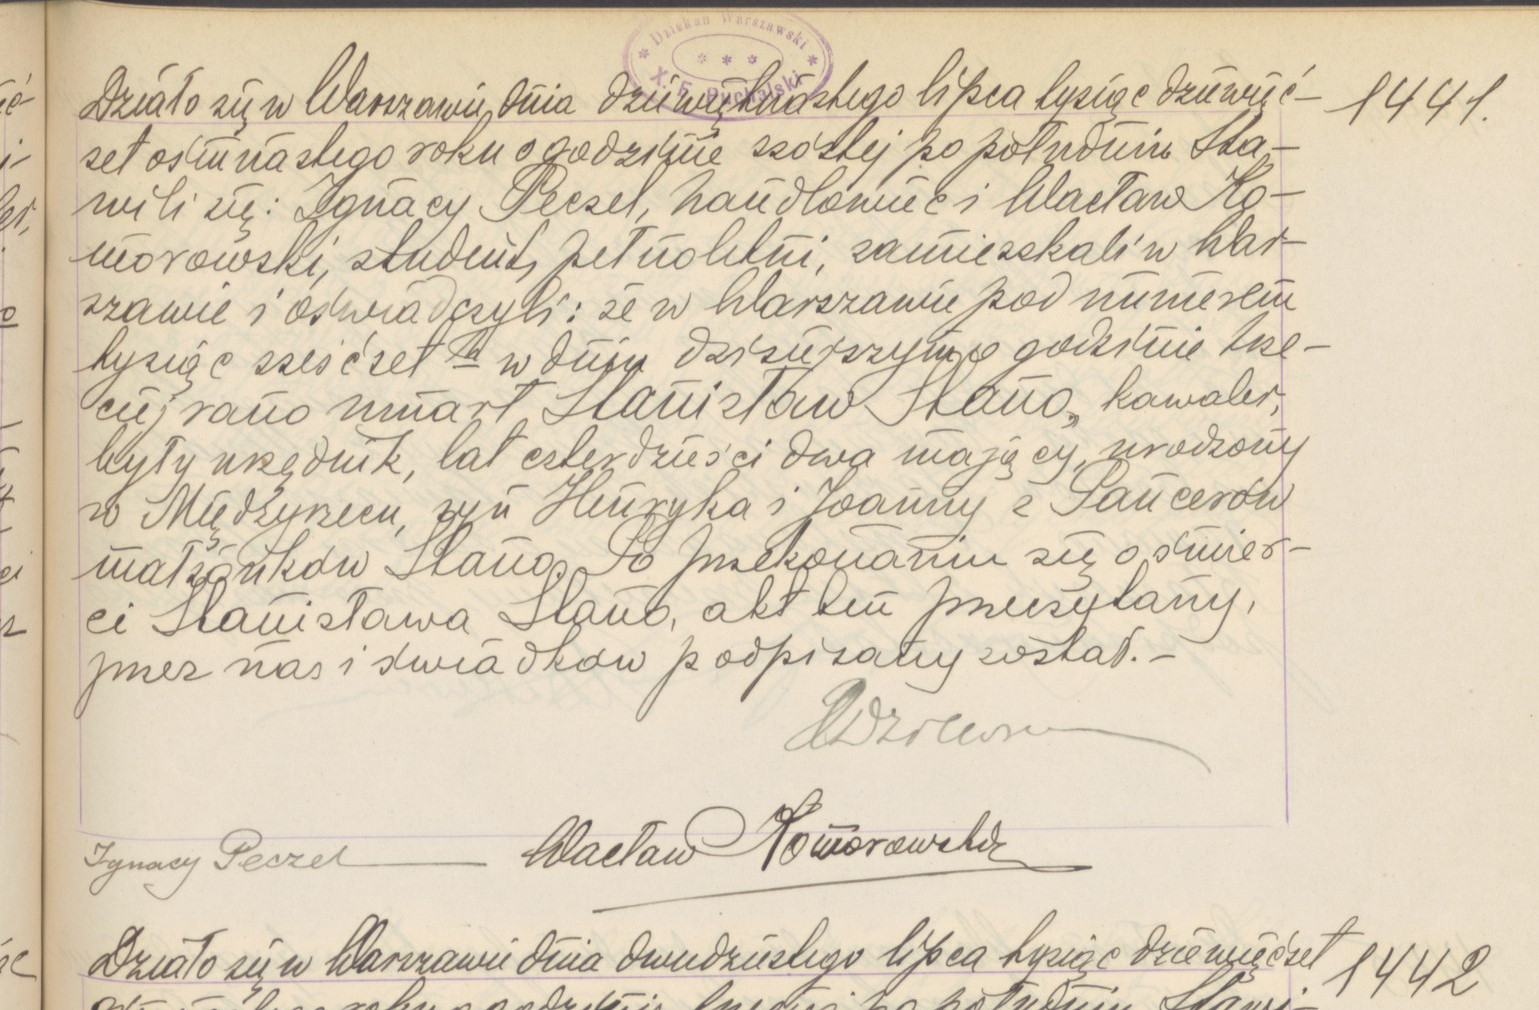 Dziekan Warszawski
X. F. Puchalski
Działo się w Warszawie, dnia dziewiętnastego lipca tysiąc dziewięć- 1441.
set ośmnastego roku o godzinie szóstej po południu Sta-
wili się: Ignacy Peczel, handlowiec i Wacław Ko-
morowski, student, pełnoletni, zamieszkali w War-
szawie i oświadczyli: że w Warszawie pod numerem
tysiąc sześćset w dniu dzisiejszym o godzinie trze-
ciej rano umarł Stanisław Stano, kawaler,
były urzędnik, lat czterdzieści dwa mający, urodzony
w Międzyrzecu, syn Henryka i Joanny z Pancerów
małżonków Stano. Po przekonaniu się o śmier-
ci Stanisława Stano, akt ten przeczytany,
przez nas i świadków podpisany został.-
Ignacy Peczel Wacław Komorowski
Działo się w Warszawie dnia dwudziestego lipca tysiąc dziewięćset 1442
roku o godzinie po południu Stawi-